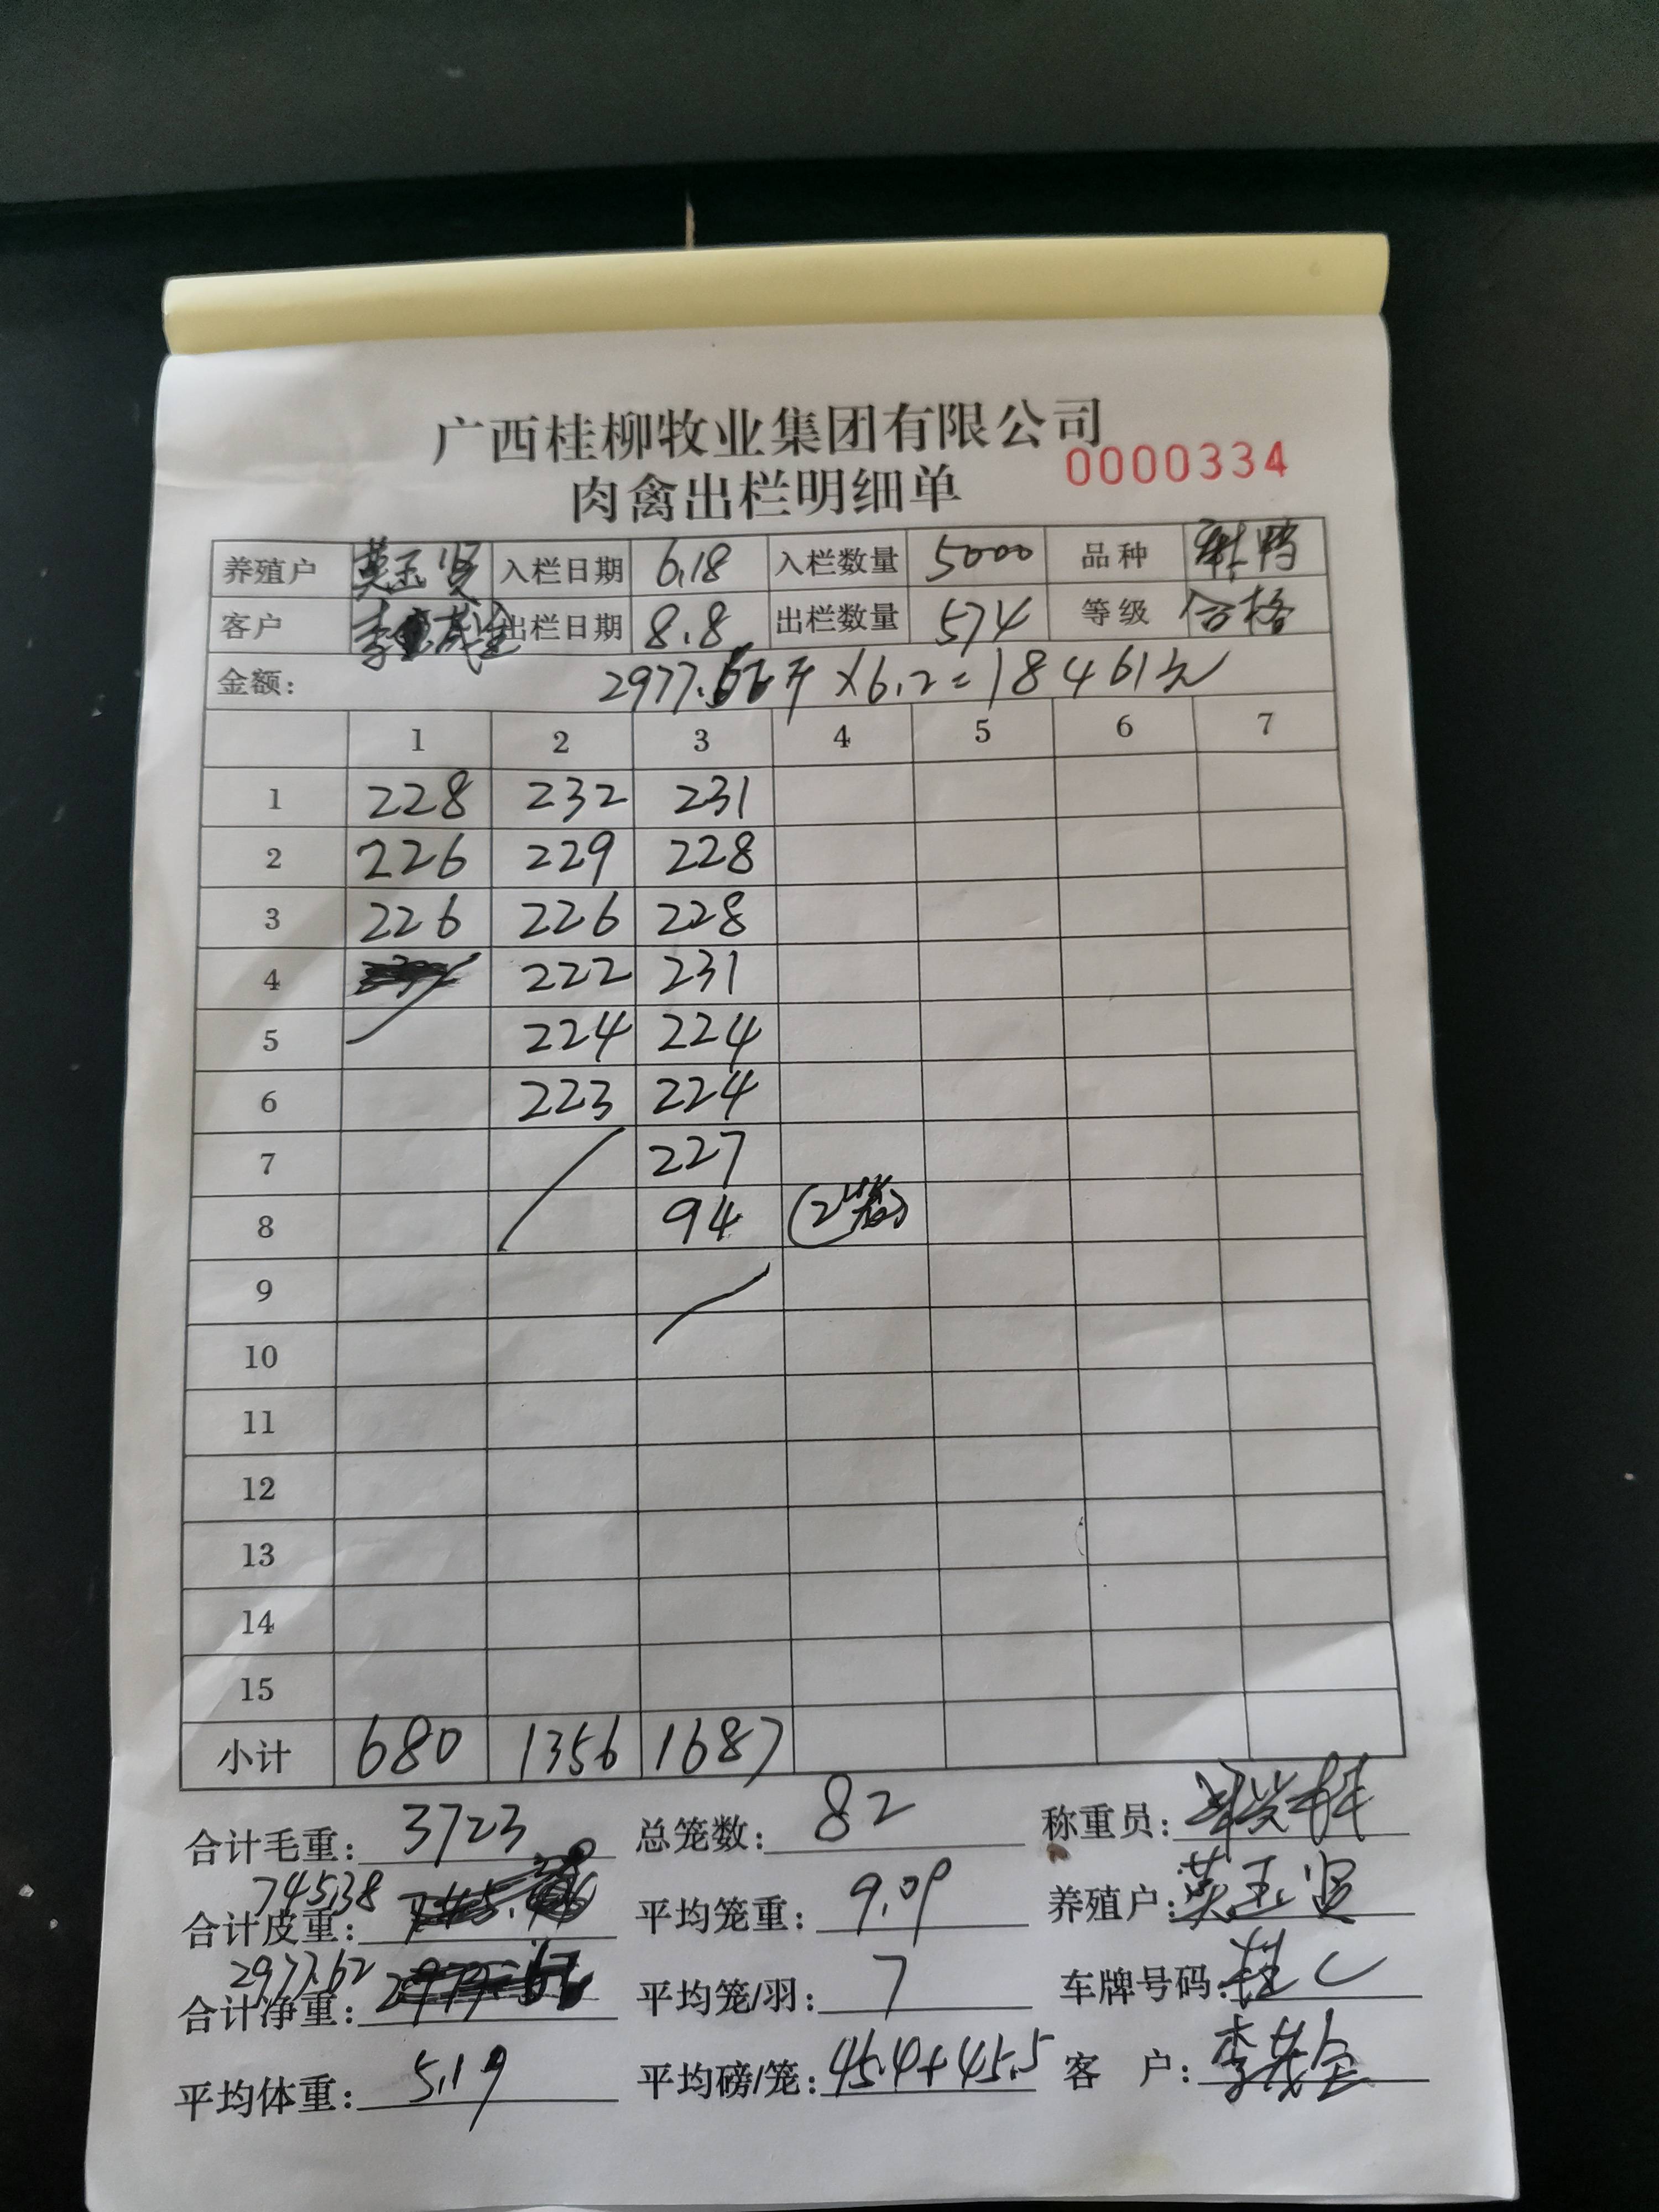 广西桂柳牧业集团有限公司
0000334
肉禽出栏明细单
养殖户 莫玉贤 入栏日期 6.18 入栏数量 5000 品种
客户 出栏日期 8.8 出栏数量 574 等级 合格
金额: 2977.62斤×6.2=18461元
1 2 3 4 5 6 7
1 228 232 231
2 226 229 228
3 226 226 228
4 222 231
5 224 224
6 223 224
7 227
8 94 (2笼)
9
10
11
12
13
14
15
小计 680 1356 1687
合计毛重: 3723 总笼数: 82 称重员:
合计皮重: 745.38 平均笼重: 9.09 养殖户: 莫玉贤
合计净重: 2977.62 平均笼/羽: 7 车牌号码: 桂C
平均体重: 5.19 平均磅/笼: 45.4+45.5 客 户: 李茂全